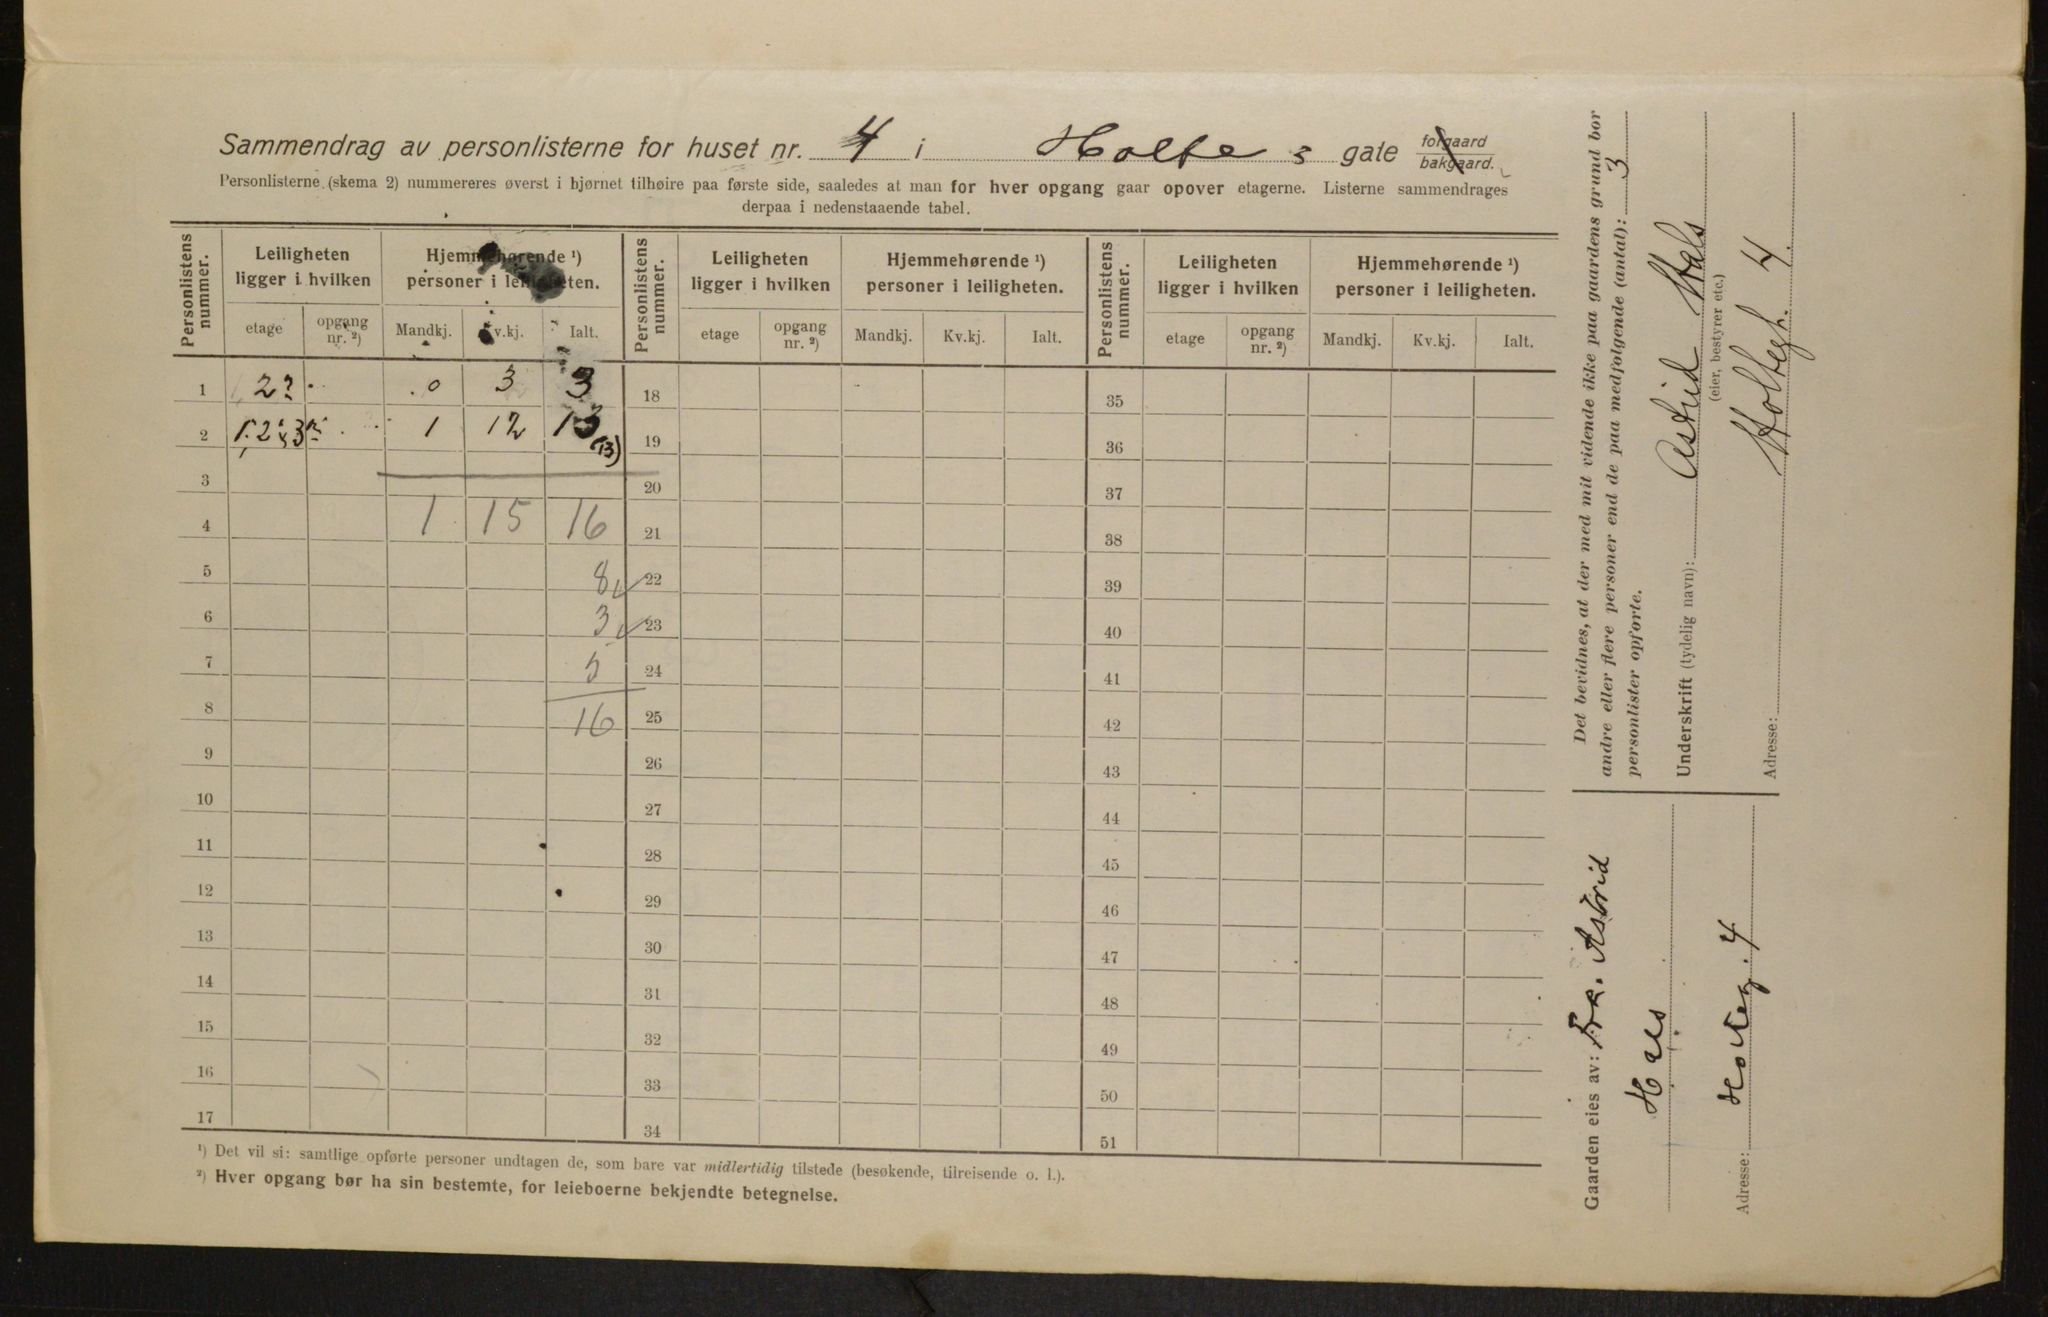 Sammendrag av personlisterne for huset nr. 4 i Holte s gate forgaard bakgaard.
Personlisterne (skema 2) nummereres øverst i hjørnet tilhøire paa første side, saaledes at man for hver opgang gaar opover etagerne. Listerne sammendrages
derpaa i nedenstaaende tabel.
Personlistens nummer. Leiligheten ligger i hvilken Hjemmehørende ¹) personer i leiligheten. Personlistens nummer. Leiligheten ligger i hvilken Hjemmehørende ¹) personer i leiligheten. Personlistens nummer. Leiligheten ligger i hvilken Hjemmehørende ¹) personer i leiligheten.
etage opgang nr. ²) Mandkj. Kv.kj. Ialt. etage opgang nr. ²) Mandkj. Kv.kj. Ialt. etage opgang nr. ²) Mandkj. Kv.kj. Ialt.
1 0 3 3 18 35
2 1 12 13 (13) 19 36
3 20 37
4 1 15 16 21 38
5 8 22 39
6 3 23 40
7 5 24 41
8 16 25 42
9 26 43
10 27 44
11 28 45
12 29 46
13 30 47
14 31 48
15 32 49
16 33 50
17 34 51
¹) Det vil si: samtlige opførte personer undtagen de, som bare var midlertidig tilstede (besøkende, tilreisende o. l.).
²) Hver opgang bør ha sin bestemte, for leieboerne bekjendte betegnelse.
Det bevidnes, at der med mit vidende ikke paa gaardens grund bor
andre eller flere personer end de paa medfølgende (antal): 3
personlister opførte.
Underskrift (tydelig navn): Astrid Hals
(eier, bestyrer etc.)
Adresse: Holtegt. 4.
Gaarden eies av: Frk. Astrid
Hals
Adresse: Holteg. 4